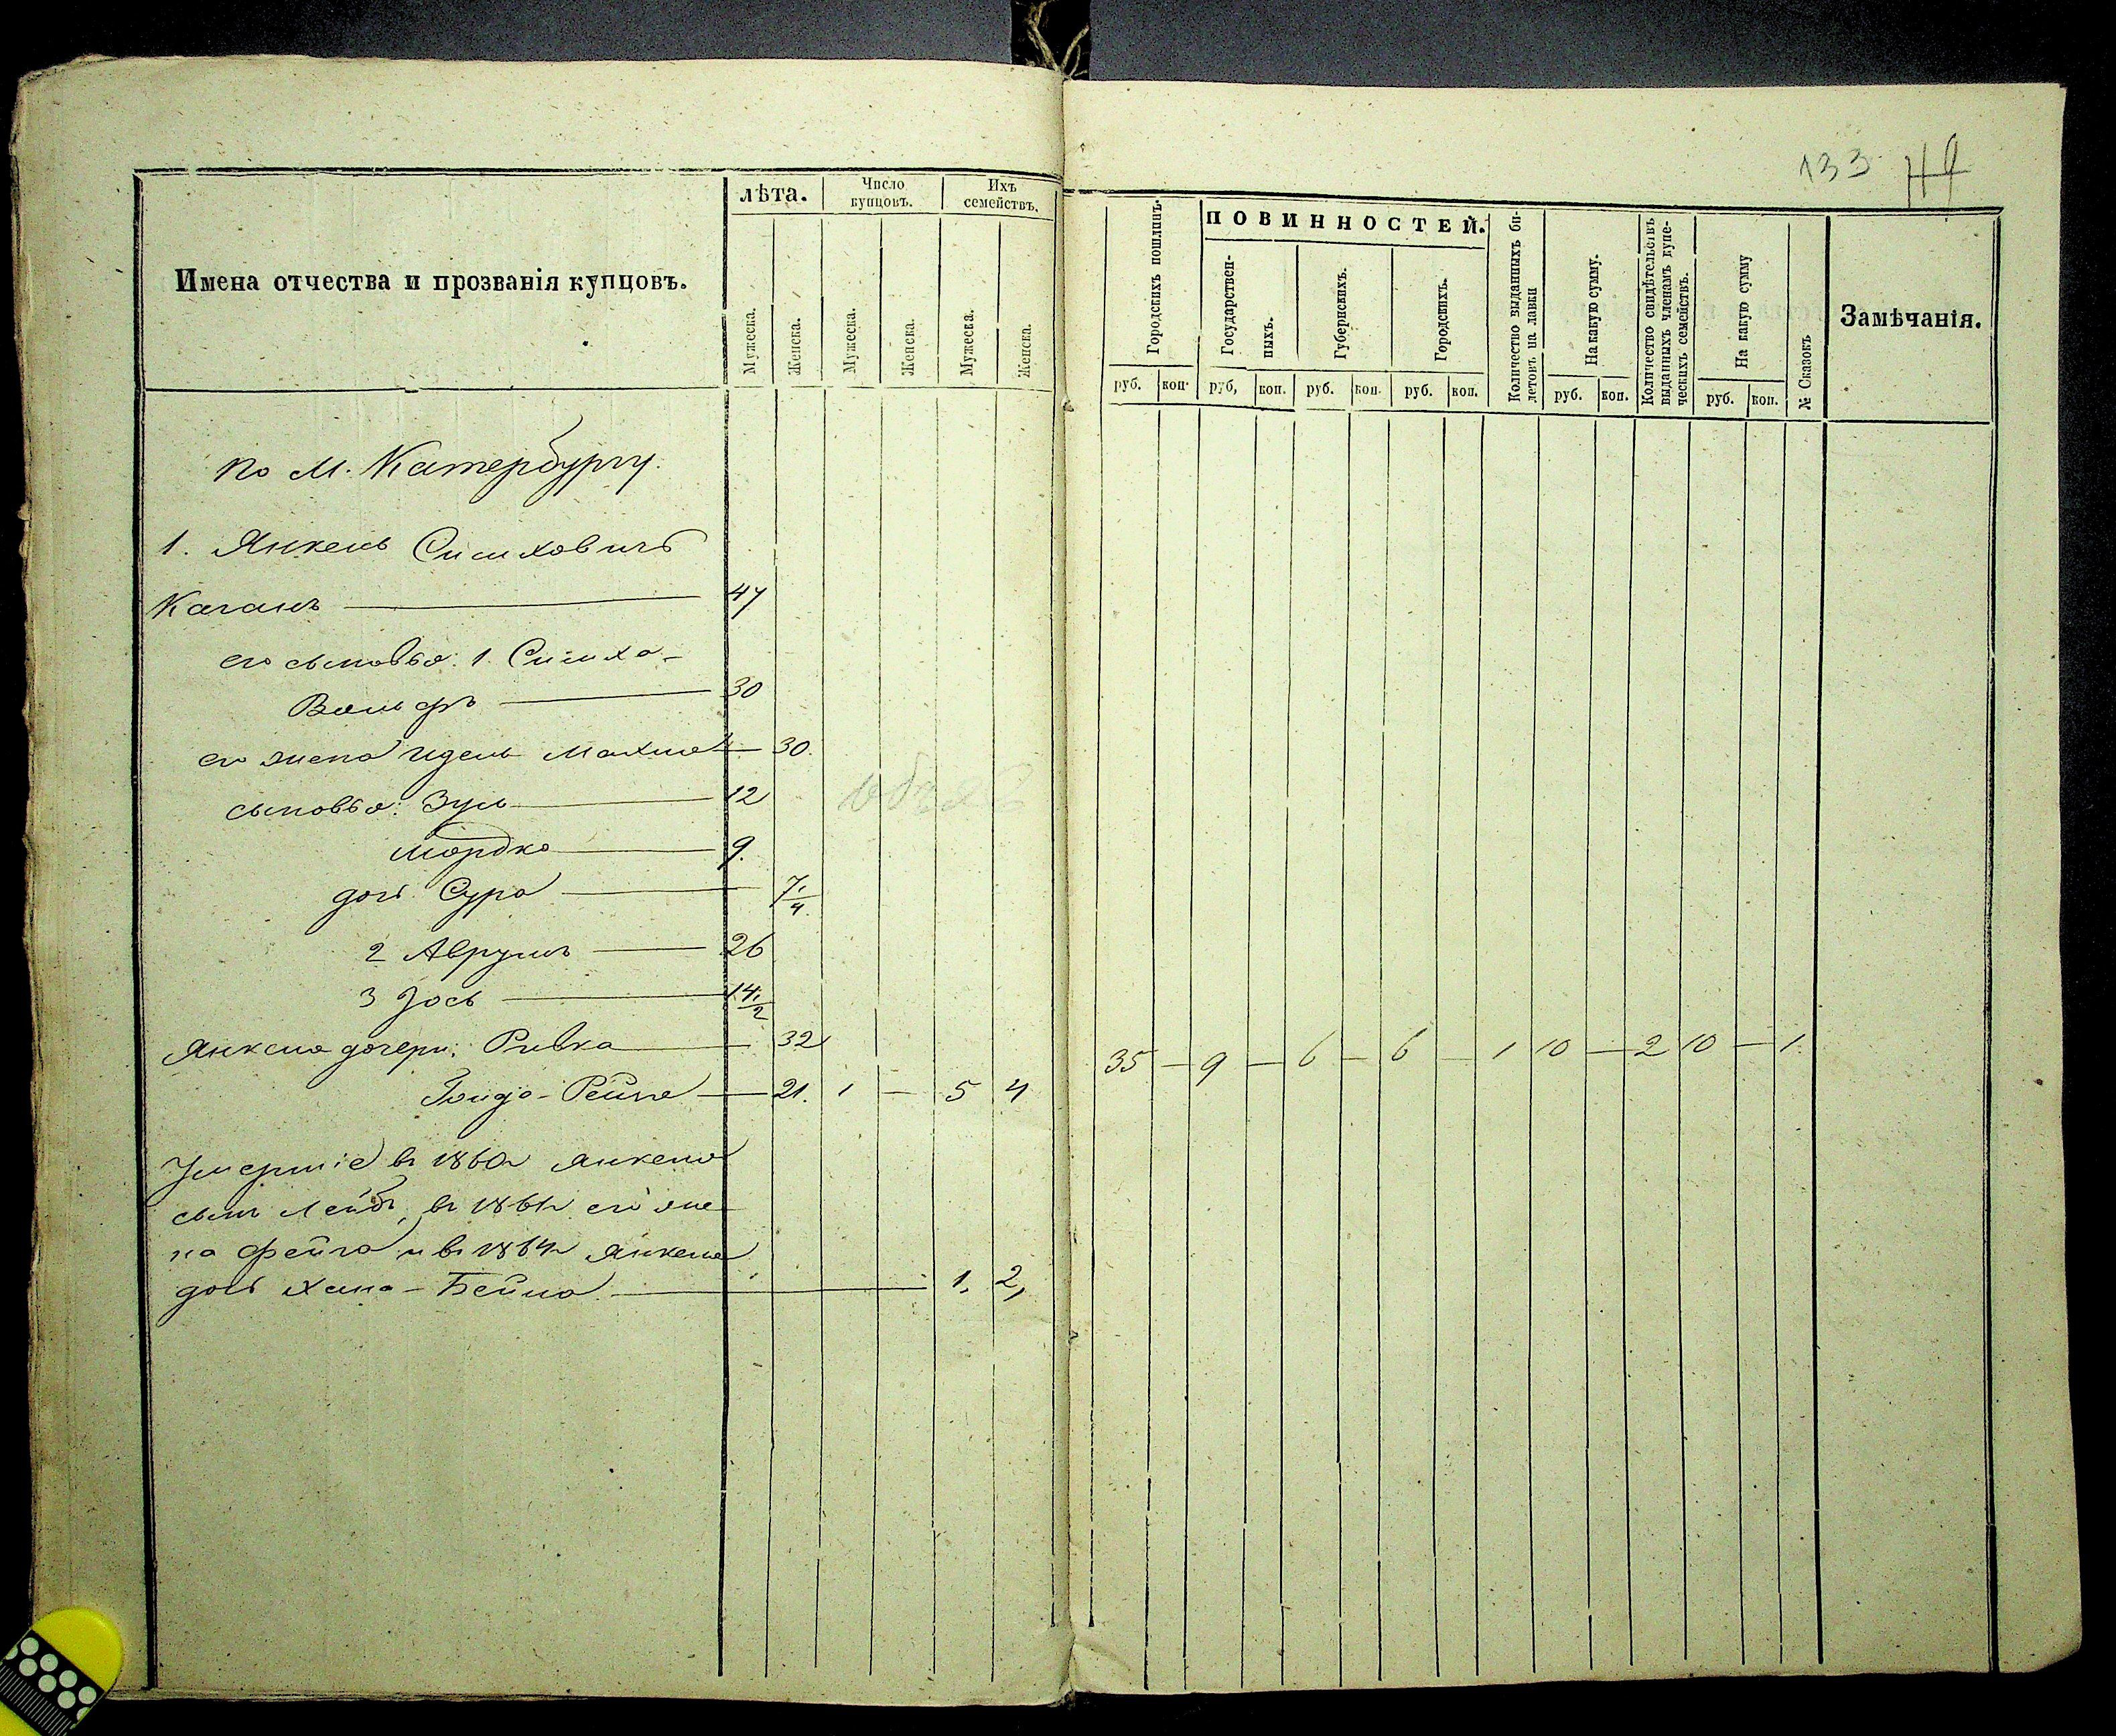 133 49
Имена отчества и прозванія купцовъ.
лѣта.
Мужеска.
Женска.
Число купцовъ.
Мужеска.
Женска.
Ихъ семействъ.
Мужеска.
Женска.
Городскихъ пошлинъ.
руб. коп.
ПОВИННОСТЕЙ.
Государственныхъ.
руб, коп.
Губернскихъ.
руб. коп.
Городскихъ.
руб. коп.
Количество выданныхъ билетовъ на лавки
На какую сумму.
руб. коп.
Количество свидѣтельствъ выданныхъ членамъ купеческихъ семействъ.
На какую сумму
руб. коп.
№ Сказокъ
Замѣчанія.
по м. Катербургу.
1. Янкель Симховичъ
Каганъ — 47
его сыновья: 1. Симха-
Вольфъ — 30
его жена Идель Махля — 30.
сыновья: Зуль — 12
Мордко — 9.
дочь Сура — 7 1/4.
2 Аврумъ — 26
3 Іось — 14 1/2
Янкеля дочери: Ривка — 32
Гольда-Рейзя — 21. 1 — 5 4
35 — 9 — 6 — 6 — 1 10 — 2 10 — 1.
Умершіе въ 1860 Янкеля
сынъ Лейбъ, въ 1861 его же-
на Фейга и въ 1864 Янкеля
дочь Хана-Бейла — 1, 2,